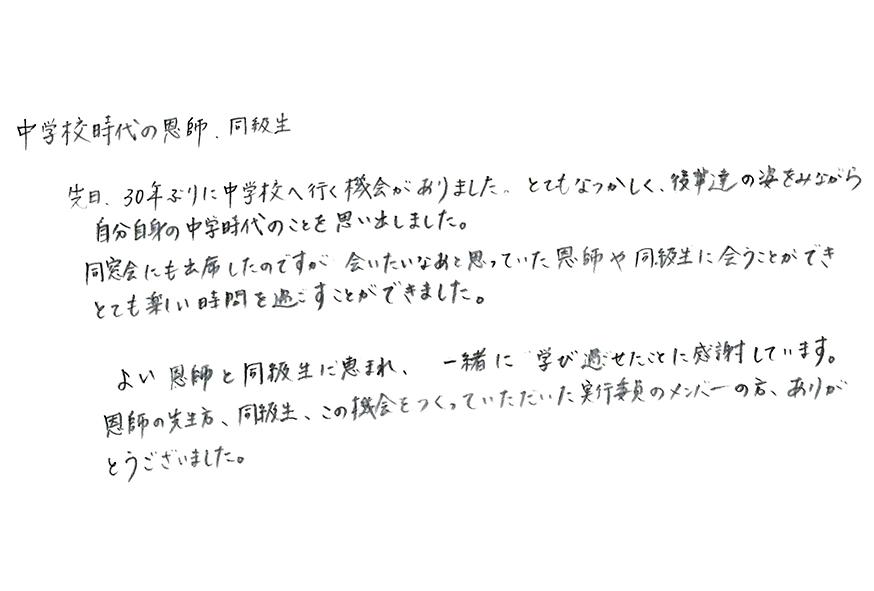 中学校時代の恩師、同級生
先日、30年ぶりに中学校へ行く機会がありました。とてもなつかしく、後輩達の姿をみながら
自分自身の中学時代のことを思い出しました。
同窓会にも出席したのですが 会いたいなあと思っていた恩師や同級生に会うことができ
とても楽しい時間を過ごすことができました。
よい恩師と同級生に恵まれ、一緒に学び過せたことに感謝しています。
恩師の先生方、同級生、この機会をつくっていただいた実行委員のメンバーの方、ありが
とうございました。